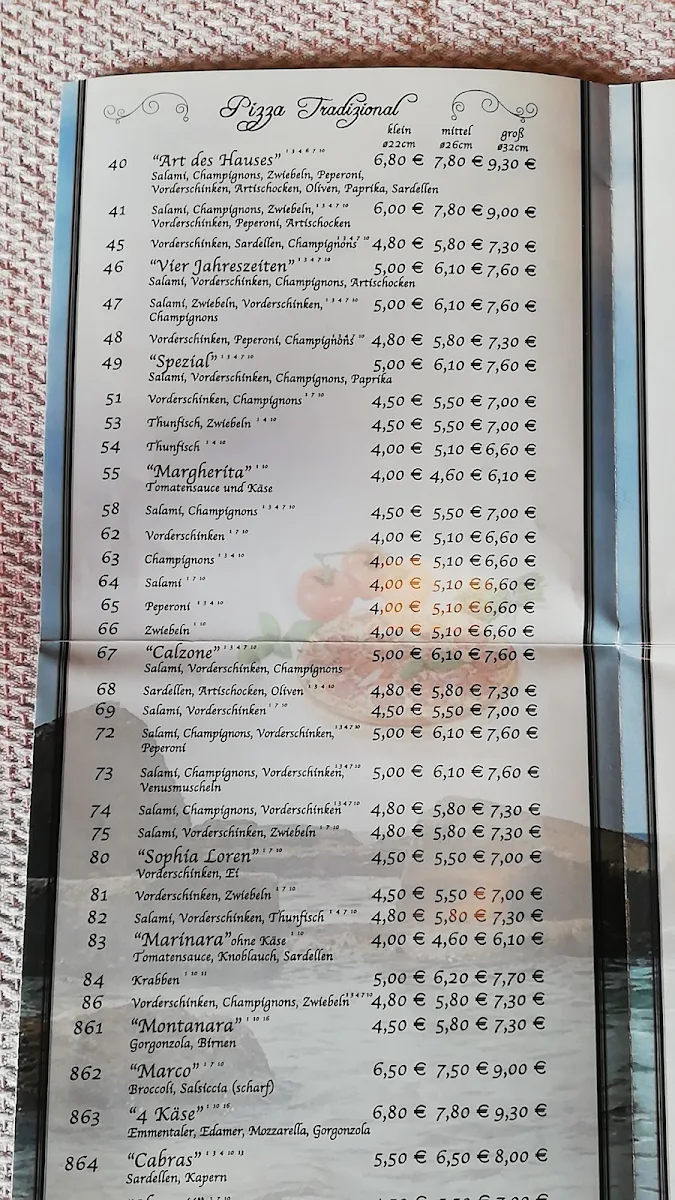 Pizza Tradizional
klein mittel groß
ø22cm ø26cm ø32cm
40 "Art des Hauses" 1 3 4 6 7 10 6,80 € 7,80 € 9,30 €
Salami, Champignons, Zwiebeln, Peperoni,
Vorderschinken, Artischocken, Oliven, Paprika, Sardellen
41 Salami, Champignons, Zwiebeln, 1 3 4 7 10 6,00 € 7,80 € 9,00 €
Vorderschinken, Peperoni, Artischocken
45 Vorderschinken, Sardellen, Champignons 1 3 4 7 10 4,80 € 5,80 € 7,30 €
46 "Vier Jahreszeiten" 1 3 4 7 10 5,00 € 6,10 € 7,60 €
Salami, Vorderschinken, Champignons, Artischocken
47 Salami, Zwiebeln, Vorderschinken, 1 3 4 7 10 5,00 € 6,10 € 7,60 €
Champignons
48 Vorderschinken, Peperoni, Champignons 1 3 4 7 10 4,80 € 5,80 € 7,30 €
49 "Spezial" 1 3 4 7 10 5,00 € 6,10 € 7,60 €
Salami, Vorderschinken, Champignons, Paprika
51 Vorderschinken, Champignons 1 7 10 4,50 € 5,50 € 7,00 €
53 Thunfisch, Zwiebeln 1 4 10 4,50 € 5,50 € 7,00 €
54 Thunfisch 1 4 10 4,00 € 5,10 € 6,60 €
55 "Margherita" 1 10 4,00 € 4,60 € 6,10 €
Tomatensauce und Käse
58 Salami, Champignons 1 3 4 7 10 4,50 € 5,50 € 7,00 €
62 Vorderschinken 1 7 10 4,00 € 5,10 € 6,60 €
63 Champignons 1 3 4 10 4,00 € 5,10 € 6,60 €
64 Salami 1 7 10 4,00 € 5,10 € 6,60 €
65 Peperoni 1 3 4 10 4,00 € 5,10 € 6,60 €
66 Zwiebeln 1 10 4,00 € 5,10 € 6,60 €
67 "Calzone" 1 3 4 7 10 5,00 € 6,10 € 7,60 €
Salami, Vorderschinken, Champignons
68 Sardellen, Artischocken, Oliven 1 3 4 10 4,80 € 5,80 € 7,30 €
69 Salami, Vorderschinken 1 7 10 4,50 € 5,50 € 7,00 €
72 Salami, Champignons, Vorderschinken, 1 3 4 7 10 5,00 € 6,10 € 7,60 €
Peperoni
73 Salami, Champignons, Vorderschinken, 1 3 4 7 10 5,00 € 6,10 € 7,60 €
Venusmuscheln
74 Salami, Champignons, Vorderschinken 1 3 4 7 10 4,80 € 5,80 € 7,30 €
75 Salami, Vorderschinken, Zwiebeln 1 7 10 4,80 € 5,80 € 7,30 €
80 "Sophia Loren" 1 7 10 4,50 € 5,50 € 7,00 €
Vorderschinken, Ei
81 Vorderschinken, Zwiebeln 1 7 10 4,50 € 5,50 € 7,00 €
82 Salami, Vorderschinken, Thunfisch 1 4 7 10 4,80 € 5,80 € 7,30 €
83 "Marinara" ohne Käse 1 10 4,00 € 4,60 € 6,10 €
Tomatensauce, Knoblauch, Sardellen
84 Krabben 1 10 11 5,00 € 6,20 € 7,70 €
86 Vorderschinken, Champignons, Zwiebeln 1 3 4 7 10 4,80 € 5,80 € 7,30 €
861 "Montanara" 1 10 16 4,50 € 5,80 € 7,30 €
Gorgonzola, Birnen
862 "Marco" 1 7 10 6,50 € 7,50 € 9,00 €
Broccoli, Salsiccia (scharf)
863 "4 Käse" 1 10 16 6,80 € 7,80 € 9,30 €
Emmentaler, Edamer, Mozzarella, Gorgonzola
864 "Cabras" 1 3 4 10 13 5,50 € 6,50 € 8,00 €
Sardellen, Kapern